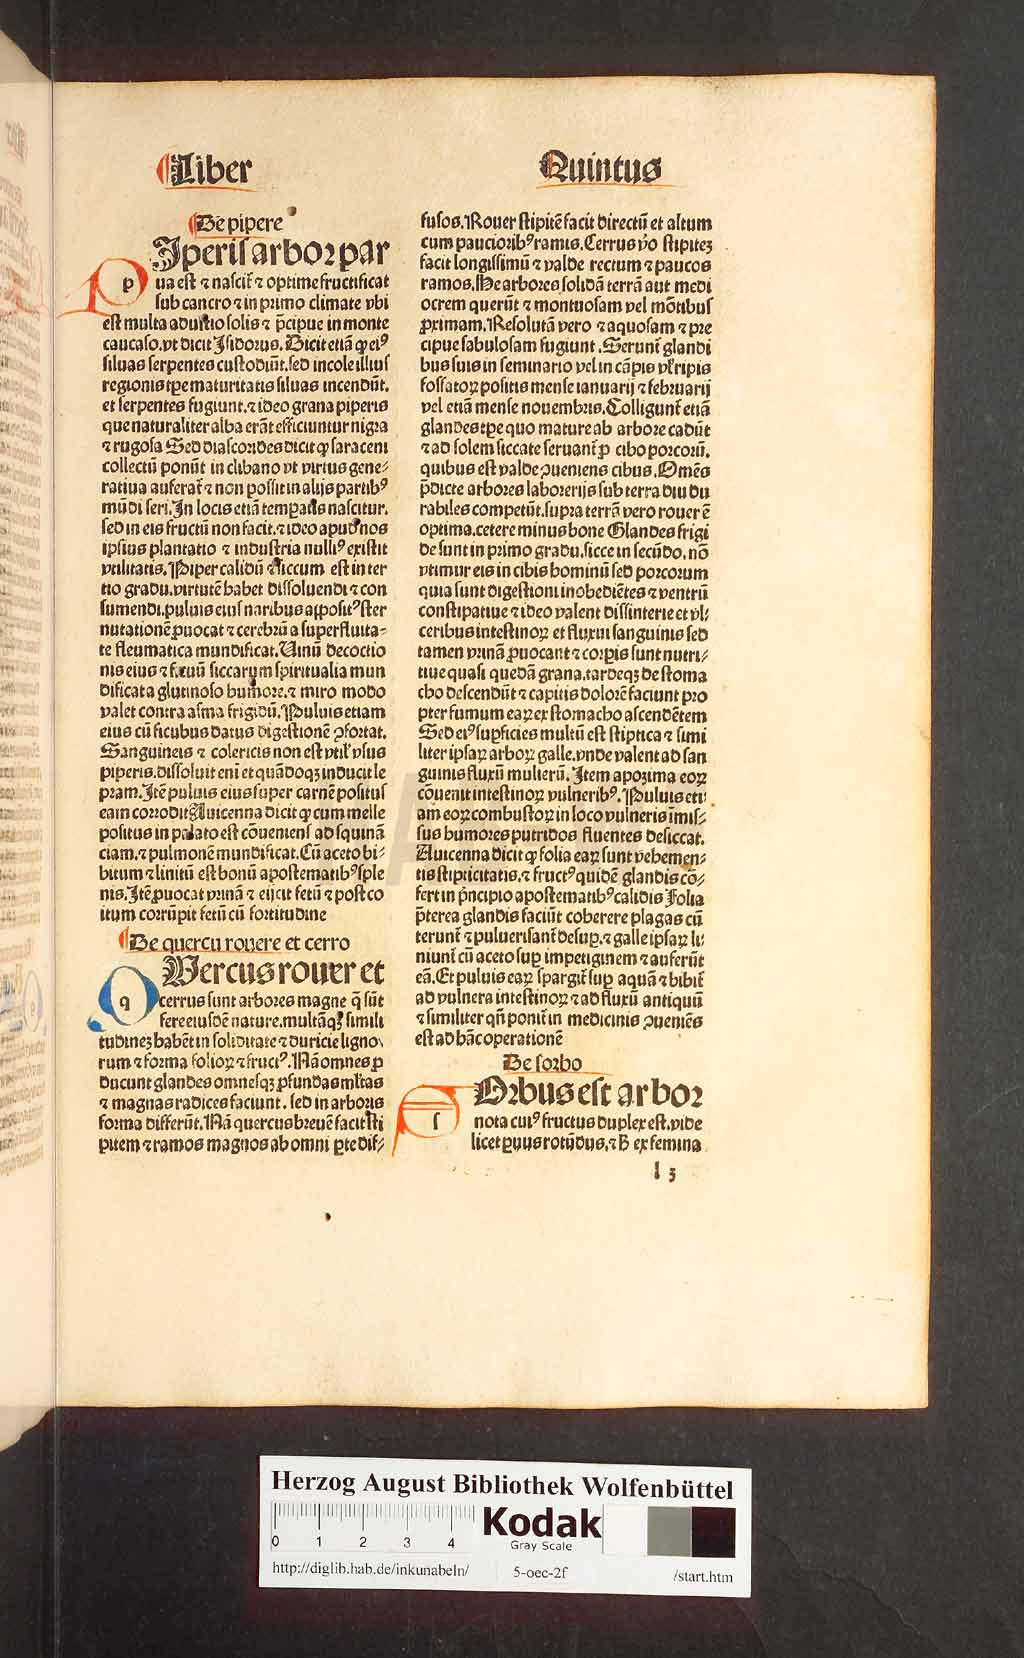 Liber
Quintus
De pipere
Iperis arbor par
p ua est ⁊ nascit᷑ ⁊ optime fructificat
sub cancro ⁊ in primo climate vbi
est multa adustio solis ⁊ p̄cipue in monte
caucaso. vt dicit Isidorus. Dicit etiā ꝙ ei⁹
siluas serpentes custodiūt. sed incole illius
regionis tꝑe maturitatis siluas incendūt.
et serpentes fugiunt. ⁊ ideo grana piperis
que naturaliter alba erāt efficiuntur nigra
⁊ rugosa Sed diascordes dicit ꝙ saraceni
collectū ponūt in clibano vt virtus gene⸗
ratiua auferat᷑ ⁊ non possit in alijs partib⁹
mūdi seri. In locis etiā temꝑatis nascitur.
sed in eis fructū non facit. ⁊ ideo apud nos
ipsius plantatio ⁊ industria nulli⁹ existit
vtilitatis. Piper calidū ⁊ siccum est in ter
tio gradu. virtutē habet dissoluendi ⁊ con
sumendi. puluis eius naribus apposit⁹ ster
nutationē ꝓuocat ⁊ cerebrū a superfluita⸗
te fleumatica mundificat. Uinū decoctio
nis eius ⁊ ficuū siccarum spiritualia mun
dificat a glutinoso humore. ⁊ miro modo
valet contra asma frigidū. Puluis etiam
eius cū ficubus datus digestionē ꝯfortat.
Sanguineis ⁊ colericis non est vtil' vsus
piperis. dissoluit eni et quādoqꝫ inducit le
pram. Itē puluis eius super carnē positus
eam corrodit Auicenna dicit ꝙ cum melle
positus in palato est cōueniens ad squinā
ciam. ⁊ pulmonē mundificat. Cū aceto bi⸗
bitum ⁊ linitū est bonū apostematib⁹ sple
nis. Itē ꝓuocat vrinā ⁊ eijcit fetū ⁊ post co
itum corrūpit fetū cū fortitudine
De quercu rouere et cerro
Uercus rouer et
q cerrus sunt arbores magne q̄ sūt
fere eiusdē nature. multāqꝫ simili
tudinez habēt in soliditate ⁊ duricie ligno⸗
rum ⁊ forma folioꝝ ⁊ fruct⁹. Nā omnes ꝓ
ducunt glandes omnesqꝫ ꝓfundas ml̓tas
⁊ magnas radices faciunt. sed in arboris
forma differūt. Nā quercus breuē facit sti
pitem ⁊ ramos magnos ab omni ꝑte dif⸗
fusos. Rouer stipitē facit directū et altum
cum paucioribꝰ ramis. Cerrus v̄o stipitez
facit longissimū ⁊ valde rectum ⁊ paucos
ramos. He arbores solidā terrā aut medi
ocrem querūt ⁊ montuosam vel mōtibus
ꝓximam. Resolutā vero ⁊ aquosam ⁊ pre
cipue sabulosam fugiunt. Serunt᷑ glandi
bus suis in seminario vel in cāpis vl' ripis
fossatoꝝ positis mense ianuarij ⁊ februarij
vel etiā mense nouembris. Colligunt᷑ etiā
glandes tꝑe quo mature ab arbore cadūt
⁊ ad solem siccate seruant᷑ ꝓ cibo porcorū.
quibus est valde ꝯueniens cibus. Omēs
p̄dicte arbores laborerijs sub terra diu du
rabiles competūt. supra terrā vero rouer ē
optima. cetere minus bone Glandes frigi
de sunt in primo gradu. sicce in secūdo. nō
vtimur eis in cibis hominū sed porcorum
quia sunt digestioni inobediētes ⁊ ventrū
constipatiue ⁊ ideo valent dissinterie et vl⸗
ceribus intestinoꝝ et fluxui sanguinis sed
tamen vrinā ꝓuocant ⁊ corꝑis sunt nutri⸗
tiue quasi quedā grana. tardeqꝫ de stoma
cho descendūt ⁊ capitis dolorē faciunt pro
pter fumum eaꝝ ex stomacho ascendētem
Sed ei⁹ suꝑficies multū est stiptica ⁊ simi
liter ipsaꝝ arboꝝ galle. vnde valent ad san
guinis fluxū mulierū. Item apozima eoꝝ
cōuenit intestinoꝝ vulnerib⁹. Puluis eti⸗
am eoꝝ combustoꝝ in loco vulneris īmis⸗
sus humores putridos fluentes desiccat.
Auicenna dicit ꝙ folia eaꝝ sunt vehemen⸗
tis stipticitatis. ⁊ fruct⁹ quidē glandis cō⸗
fert in p̓ncipio apostematib⁹ calidis Folia
p̄terea glandis faciūt coherere plagas cū
terunt᷑ ⁊ puluerisant᷑ desuꝑ. ⁊ galle ipsaꝝ li⸗
niunt᷑ cū aceto suꝑ impetiginem ⁊ auferūt
eā. Et puluis eaꝝ spargit᷑ suꝑ aquā ⁊ bibit᷑
ad vulnera intestinoꝝ ⁊ ad fluxū antiquū
⁊ similiter qn̄ ponit᷑ in medicinis ꝯueniēs
est ad hāc operationē
De sorbo
Orbus est arbor
s nota cui⁹ fructus duplex est. vide
licet ꝑuus rotūdus. ⁊ B ex femina
l 3
HAB
Herzog August Bibliothek Wolfenbüttel
0 1 2 3 4
Kodak
Gray Scale
http://diglib.hab.de/inkunabeln/ 5-oec-2f /start.htm